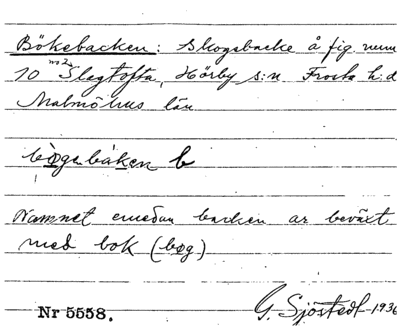 Bökebacken: Skogsbacke å fig num
10 Slagtofta, Hörby s:n Frosta h:d
Malmöhus län
bøgebaken b
Namnet emedan backen är beväxt
med bok (bøg)
Nr 5558. G. Sjöstedt 1936